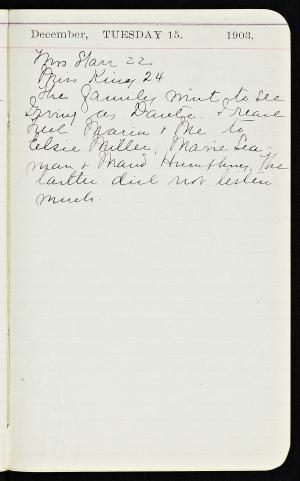 December, TUESDAY 15. 1903.
Mrs Starr 22
Miss King 24
The family wint to see
Irving as Dante. I read
Neil Maria & Me to
Elsie Miller, Marie Sea-
man & Maud Humphrey, The
lartter did not listen
much.